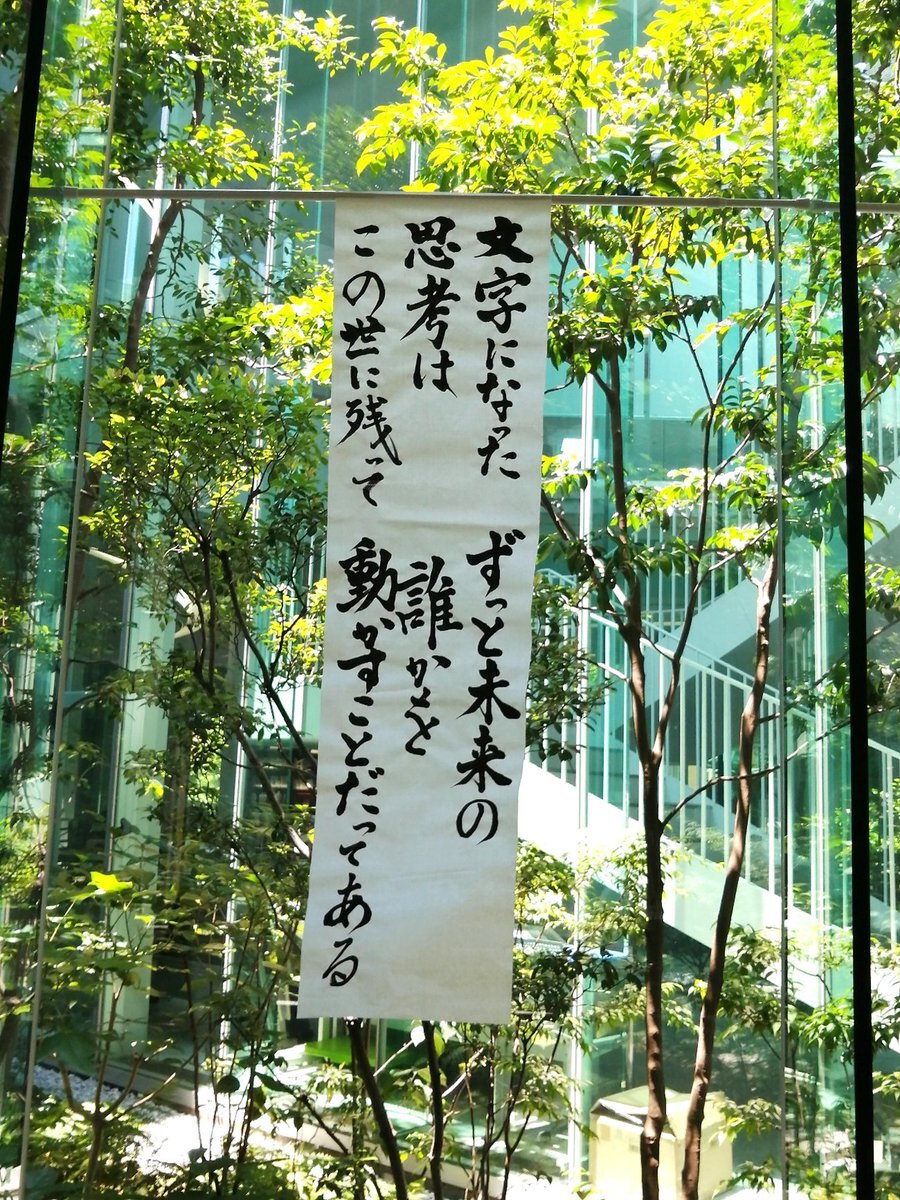 文字になった
思考は
この世に残って
ずっと未来の
誰かを
動かすことだってある